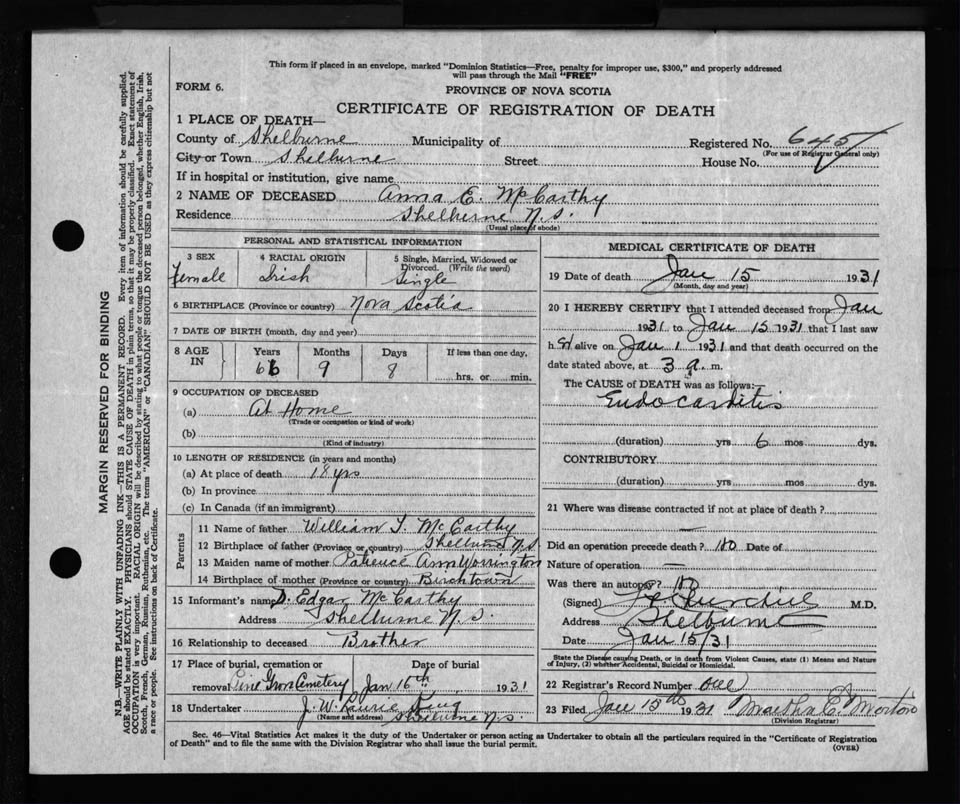 This form if placed in an envelope, marked "Dominion Statistics—Free, penalty for improper use, $300," and properly addressed
will pass through the Mail "FREE"
FORM 6.
PROVINCE OF NOVA SCOTIA
CERTIFICATE OF REGISTRATION OF DEATH
1 PLACE OF DEATH—
County of Shelburne Municipality of Registered No. 645
(For use of Registrar General only)
City or Town Shelburne Street House No.
If in hospital or institution, give name
2 NAME OF DECEASED Anna E. McCarthy
Residence Shelburne N.S.
(Usual place of abode)
PERSONAL AND STATISTICAL INFORMATION
3 SEX 4 RACIAL ORIGIN 5 Single, Married, Widowed or
Divorced. (Write the word)
Female Irish Single
6 BIRTHPLACE (Province or country) Nova Scotia
7 DATE OF BIRTH (month, day and year)
8 AGE IN Years Months Days If less than one day,
66 9 8 hrs. or min.
9 OCCUPATION OF DECEASED
(a) At Home
(Trade or occupation or kind of work)
(b)
(Kind of industry)
10 LENGTH OF RESIDENCE (in years and months)
(a) At place of death 18 yrs
(b) In province
(c) In Canada (if an immigrant)
Parents
11 Name of father William T. McCarthy
12 Birthplace of father (Province or country) Shelburne N.S
13 Maiden name of mother Patience Ann Worrington
14 Birthplace of mother (Province or country) Birchtown
15 Informant's name D. Edgar McCarthy
Address Shelburne N.S.
16 Relationship to deceased Brother
17 Place of burial, cremation or Date of burial
removal Pine Grove Cemetery Jan 16th 1931
18 Undertaker J. W. Laurie King
(Name and address) Shelburne N.S.
MEDICAL CERTIFICATE OF DEATH
19 Date of death Jan 15 1931
(Month, day and year)
20 I HEREBY CERTIFY that I attended deceased from Jan
1931 to Jan 15 1931 that I last saw
h er alive on Jan 1 1931 and that death occurred on the
date stated above, at 3 a. m.
The CAUSE of DEATH was as follows:
Endocarditis
(duration) yrs 6 mos dys.
CONTRIBUTORY
(duration) yrs mos dys.
21 Where was disease contracted if not at place of death?
—
Did an operation precede death? no Date of
Nature of operation —
Was there an autopsy? no
(Signed) Churchill M.D.
Address Shelburne
Date Jan 15/31
State the Disease causing Death, or in death from Violent Causes, state (1) Means and Nature
of Injury, (2) whether Accidental, Suicidal or Homicidal.
22 Registrar's Record Number
23 Filed Jan 15th 1931 Martha E. Morton
(Division Registrar)
Sec. 46—Vital Statistics Act makes it the duty of the Undertaker or person acting as Undertaker to obtain all the particulars required in the "Certificate of Registration
of Death" and to file the same with the Division Registrar who shall issue the burial permit.
(OVER)
MARGIN RESERVED FOR BINDING
N.B.—WRITE PLAINLY WITH UNFADING INK—THIS IS A PERMANENT RECORD. Every item of information should be carefully supplied.
AGE should be stated EXACTLY. PHYSICIANS should STATE CAUSE OF DEATH in plain terms, so that it may be properly classified. Exact statement of
OCCUPATION is very important. RACIAL ORIGIN will be described by stating to what people or tongue the deceased person belonged, whether English, Irish,
Scotch, French, German, Russian, Ruthenian, etc. The terms "AMERICAN" or "CANADIAN" SHOULD NOT BE USED as they express citizenship but not
a race or people. See instructions on back of Certificate.